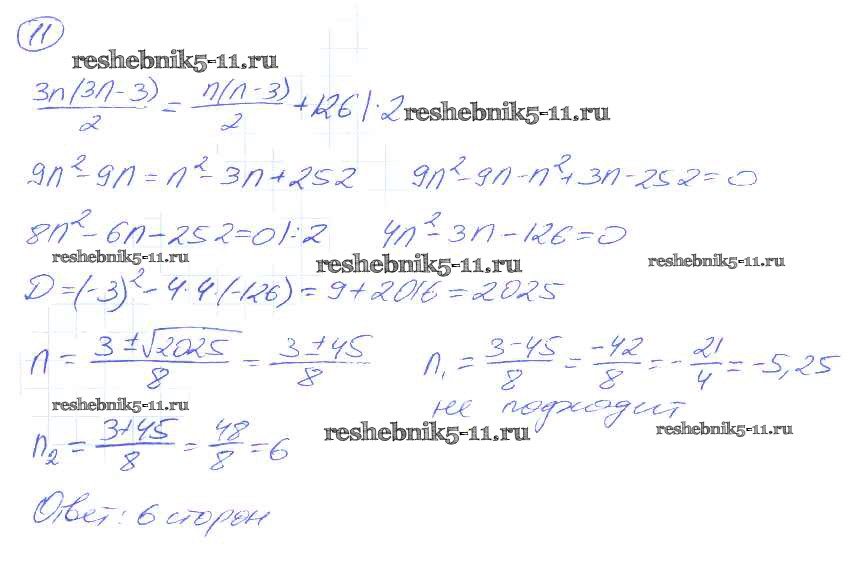 11
reshebnik5-11.ru
3n(3n-3)/2 = n(n-3)/2 + 126 |·2 reshebnik5-11.ru
9n² - 9n = n² - 3n + 252 9n² - 9n - n² + 3n - 252 = 0
8n² - 6n - 252 = 0 |:2 4n² - 3n - 126 = 0
reshebnik5-11.ru reshebnik5-11.ru reshebnik5-11.ru
D = (-3)² - 4·4·(-126) = 9 + 2016 = 2025
n = (3 ± √2025)/8 = (3 ± 45)/8 n₁ = (3 - 45)/8 = -42/8 = -21/4 = -5,25
reshebnik5-11.ru не подходит
n₂ = (3 + 45)/8 = 48/8 = 6 reshebnik5-11.ru reshebnik5-11.ru
Ответ: 6 сторон